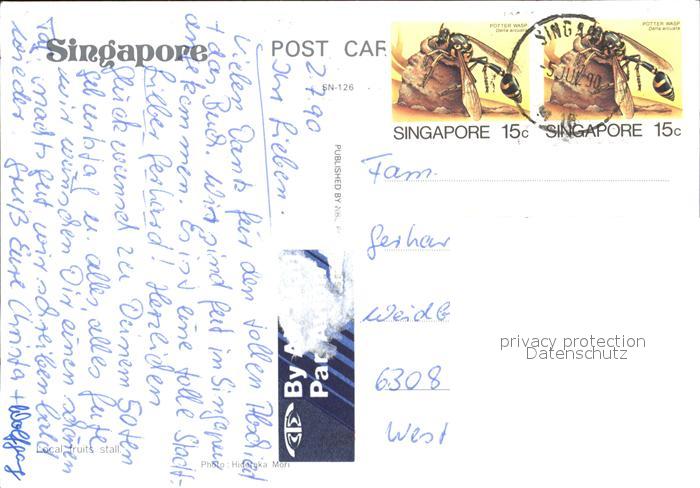 Singapore
POST CAR
SN-126
POTTER WASP
Delta arcuata
SINGAPORE 15c
POTTER WASP
Delta arcuata
SINGAPORE 15c
SING
5 JUL 90
2.7.90
Ihr Lieben.
Vielen Dank für den tollen Abschied
+ das Buch. Wir sind gut in Singapur
angekommen. Es ist eine tolle Stadt.
Lieber Gerhard! Herzlichen
Glückwunsch zu Deinem 50ten
Geburtstag u. alles, alles Gute
wir wünschen Dir einen schönen
Tag, macht's gut wir schreiben bald
wieder Gruß Eure Christa + Wolfgang
PUBLISHED BY
By A
Par
Fam.
Gerhar
Weidl
6308
West
privacy protection
Datenschutz
Local fruits stall.
Photo: Hidetaka Mori